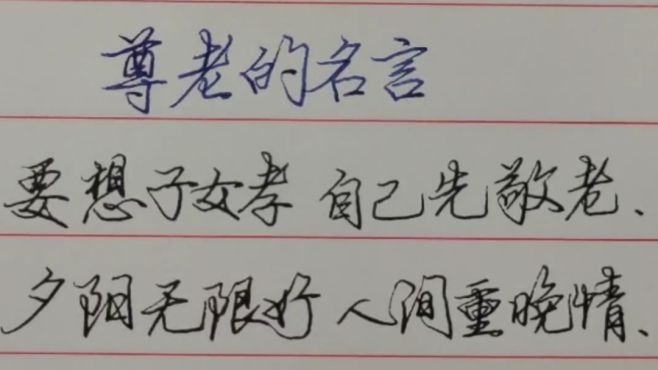 尊老的名言
要想子女孝 自己先敬老、
夕阳无限好 人间重晚情、